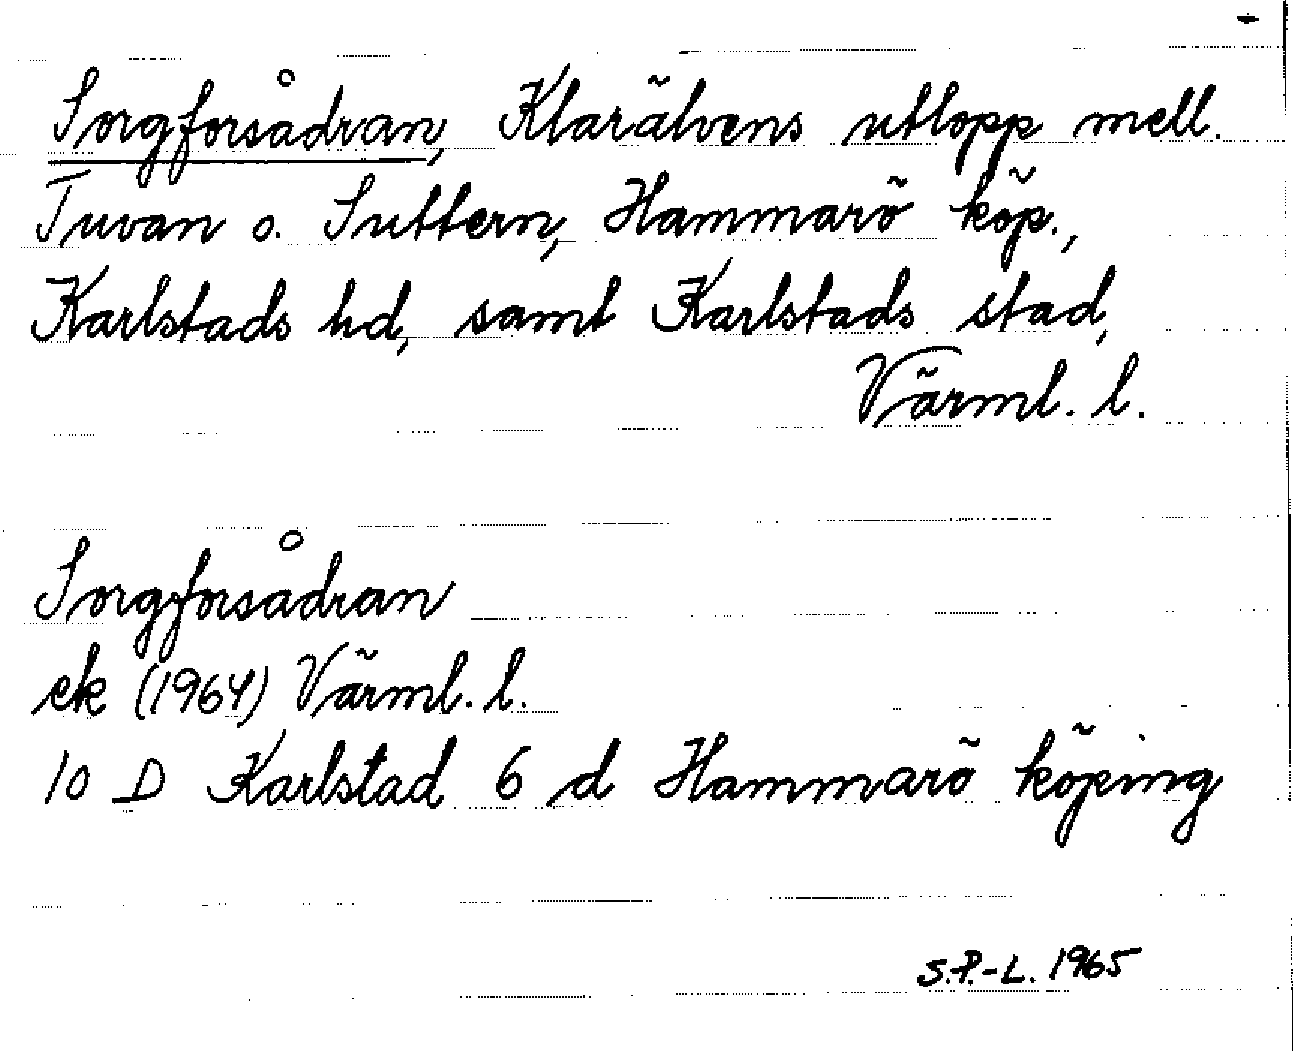 Sorgforsådran, Klarälvens utlopp mell.
Tuvan o. Suttern, Hammarö köp.,
Karlstads hd, samt Karlstads stad,
Värml. l.
Sorgforsådran
ek (1964) Värml. l.
10 D Karlstad 6 d Hammarö köping
S.P.-L. 1965